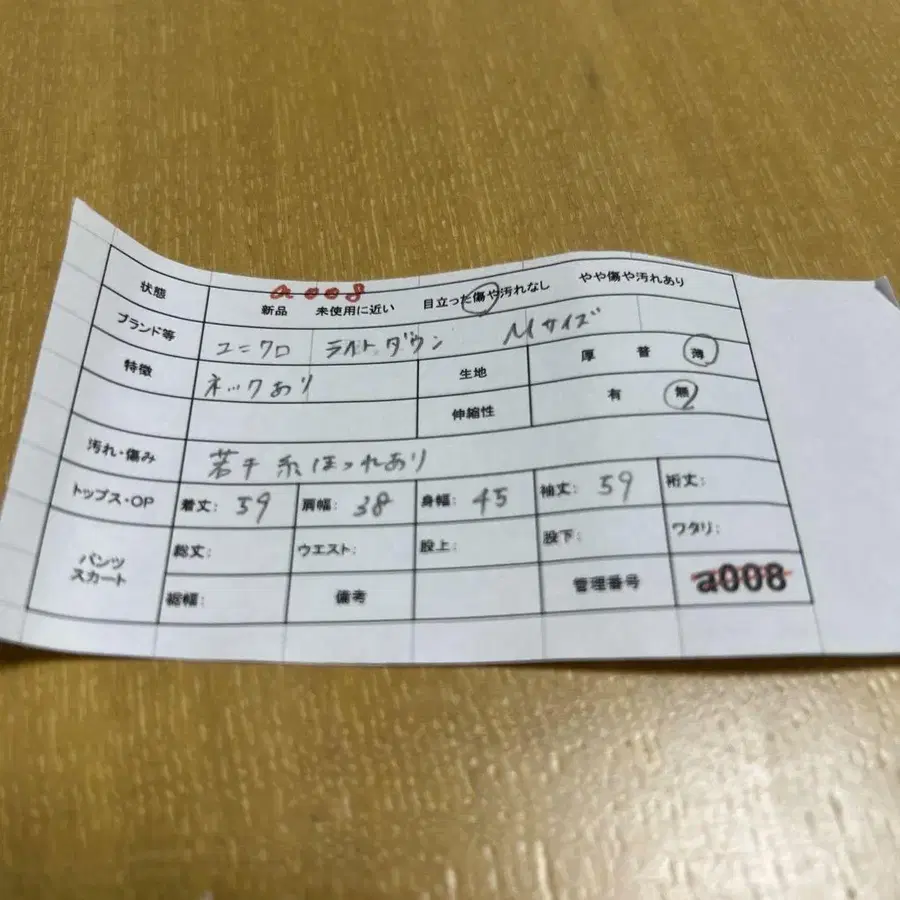 a008
状態 新品 未使用に近い 目立った傷や汚れなし やや傷や汚れあり
ブランド等 ユニクロ ライト ダウン Mサイズ
特徴 ネックあり 生地 厚 普 薄
伸縮性 有 無
汚れ・傷み 若干糸ほつれあり
トップス・OP 着丈: 59 肩幅: 38 身幅: 45 袖丈: 59 裄丈:
パンツ スカート 総丈: ウエスト: 股上: 股下: ワタリ:
裾幅: 備考 管理番号 a008